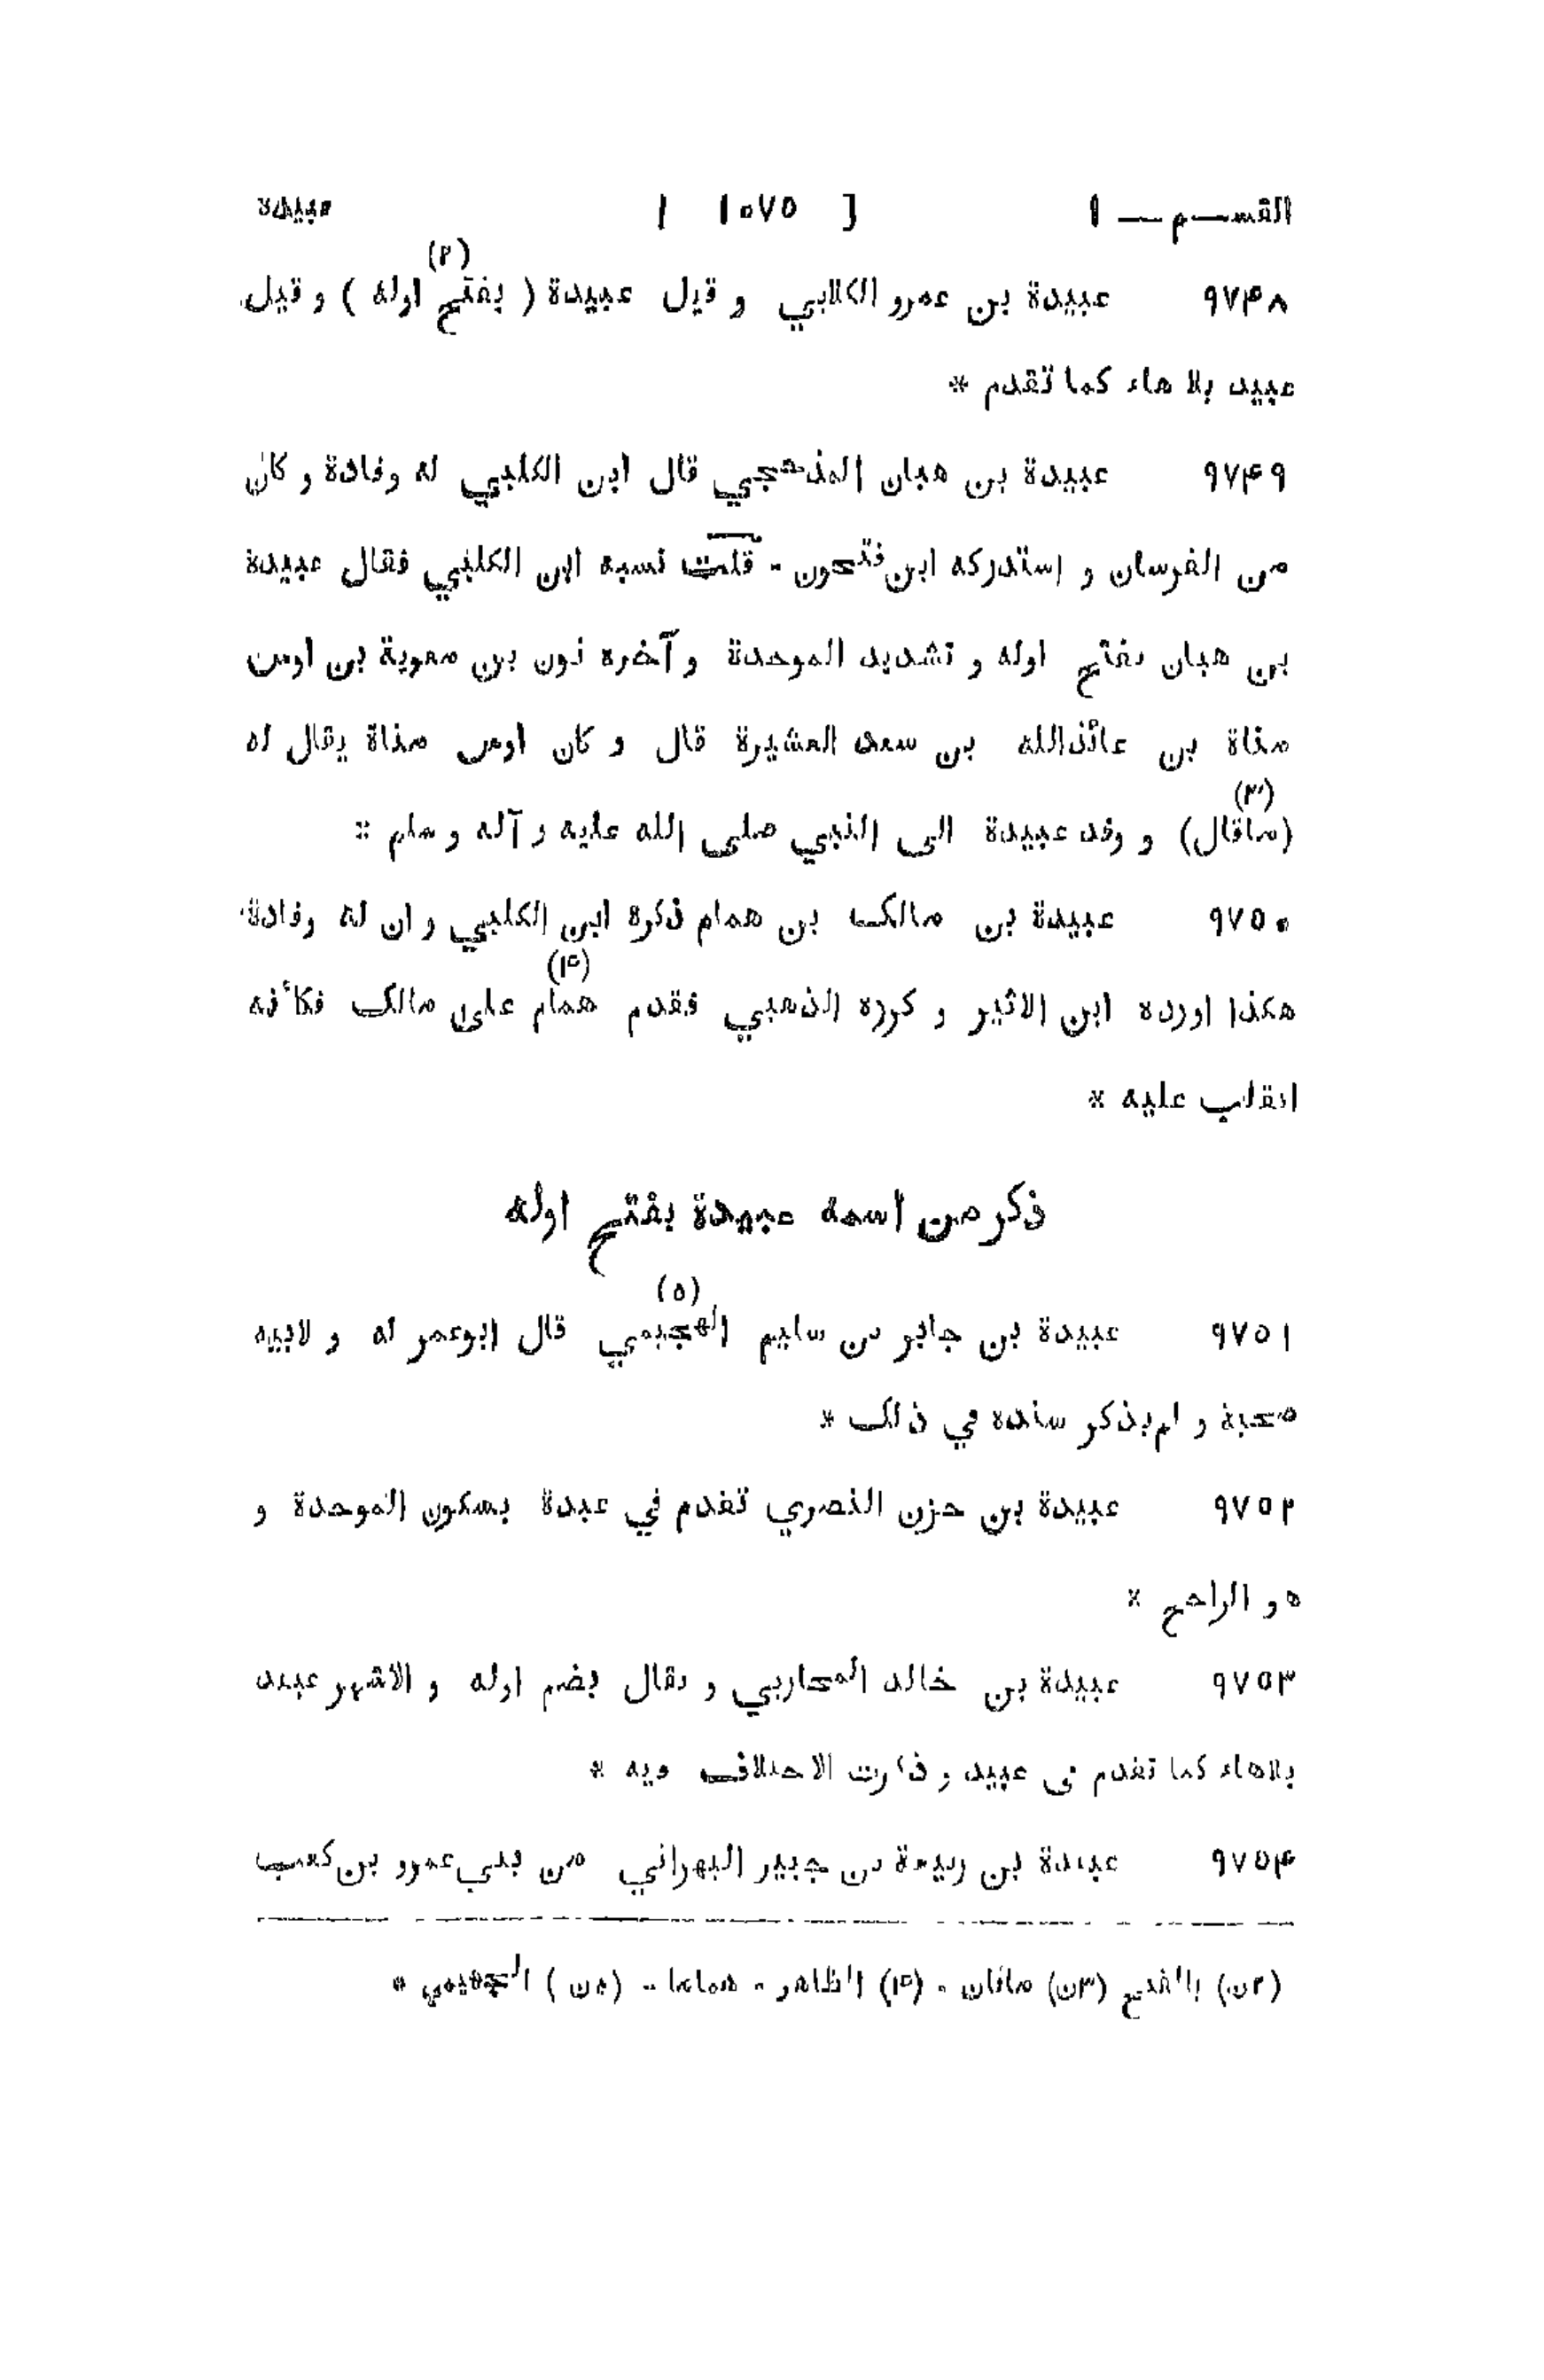 القســم — ١ [ ١٠٧٥ ] عبيدة
٩٧۴٨ عبيدة بن عمرو الكلابي و قيل عبيدة ( بفتح (٢) اوله ) و قيل
عبيد بلا هاء كما تقدم *
٩٧۴٩ عبيدة بن هبان المذحجي قال ابن الكلبي له وفادة و كان
من الفرسان و استدركه ابن فتحون - قلت نسبه ابن الكلبي فقال عبيدة
بن هبان بفتح اوله و تشديد الموحدة و آخره نون بن معوية بن اوس
مناة بن عائذالله بن سعد العشيرة قال و كان اوس مناة يقال له
(ساقال) (٣) و وفد عبيدة الى النبي صلى الله عليه و آله و سلم *
٩٧٥٠ عبيدة بن مالك بن همام ذكره ابن الكلبي و ان له وفادة
هكذا اورده ابن الاثير و كرره الذهبي فقدم همام (۴) على مالك فكأنه
انقلب عليه *
ذكر من اسمه عبيدة بفتح اوله
٩٧٥١ عبيدة بن جابر بن سليم الهجيمي (٥) قال ابوعمر له و لابيه
صحبة و لم يذكر سنده في ذلك *
٩٧٥٢ عبيدة بن حزن النصري تقدم في عبدة بسكون الموحدة و
هو الراجح *
٩٧٥٣ عبيدة بن خالد المحاربي و يقال بضم اوله و الاشهر عبيد
بلاهاء كما تقدم في عبيد و ذكرت الاختلاف فيه *
٩٧٥۴ عبيدة بن ربيعة بن جبير البهراني من بني عمرو بن كعب
(٢ن) بالفتح (٣ن) ماقان - (۴) الظاهر - هماما - (٥ن) الجهيمي *